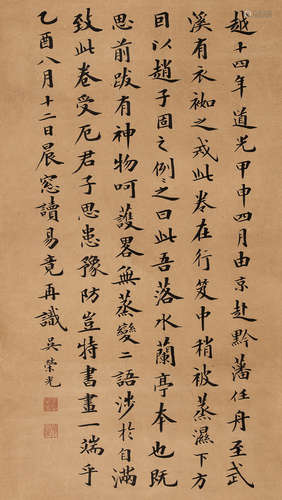 越十四年道光甲申四月由京赴黔藩任舟至武
溪有衣袽之戒此卷在行笈中稍被蒸濕下方
因以趙子固之例例之曰此吾落水蘭亭本也既
思前跋有神物呵護畧無蒸變二語涉於自滿
致此卷受厄君子思患豫防豈特書畫一端乎
乙酉八月十二日晨窓讀易竟再識 吳榮光